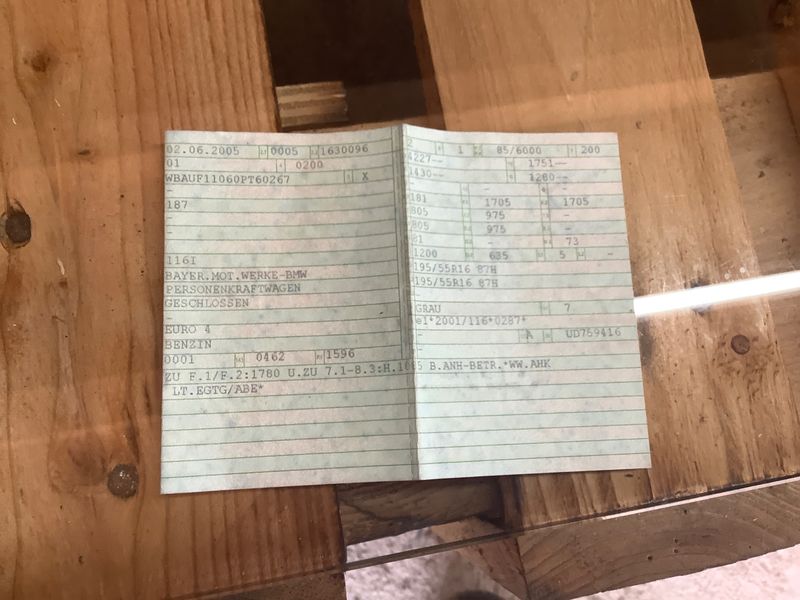 02.06.2005 0005 1630096
01 0200
WBAUF11060PT60267 X
-
187
-
116I
BAYER.MOT.WERKE-BMW
PERSONENKRAFTWAGEN
GESCHLOSSEN
-
EURO 4
BENZIN
0001 0462 1596
2 1 85/6000 200
4227-- 1751--
1430-- 1280--
- - -
181 1705 1705
805 975 -
805 975 -
- 73
1200 635 5 -
195/55R16 87H
195/55R16 87H
-
GRAU 7
e1*2001/116*0287*
- A UD759416
ZU F.1/F.2:1780 U.ZU 7.1-8.3:H. B.ANH-BETR.*WW.AHK
LT.EGTG/ABE*